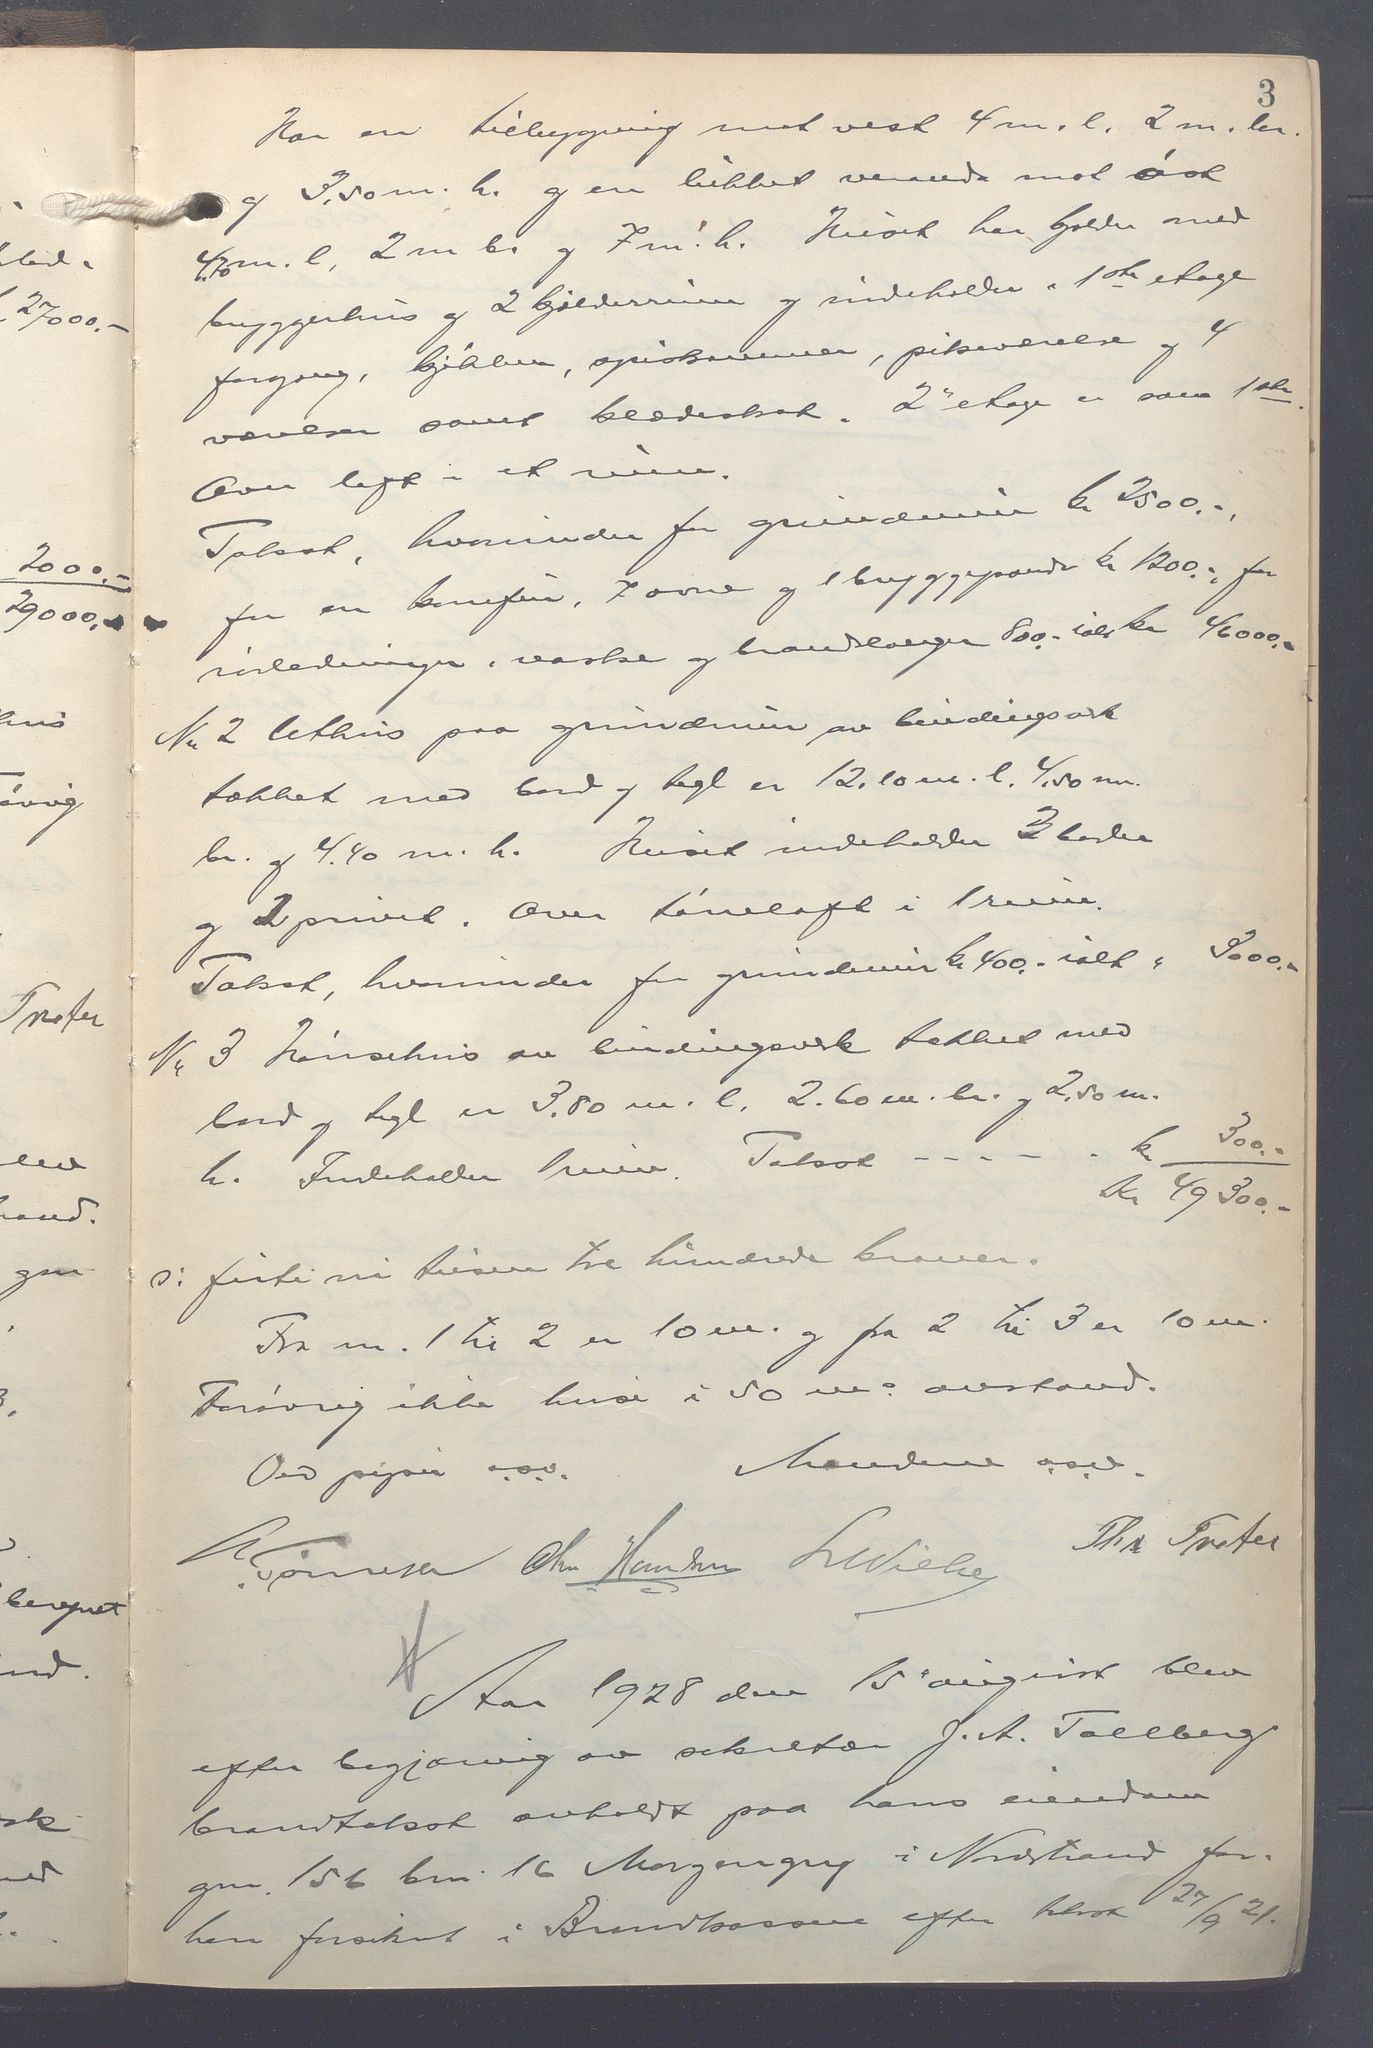 3
Har en tilbygning mot vest 4 m. l. 2 m. br.
og 3,50 m. h. og en lukket veranda mot øst
4,70 m. l, 2 m br og 7 m. h. Huset har kjelder med
bryggerhus og 2 kjelderrum og indeholder i 1ste etage
forgang, kjøkken, spiskammer, pikeværelse og 4
værelser samt klædeskot. 2" etage er som 1ste.
Over loft i et rum.
Takst, hvorunder for grundmur kr 2500.-,
for en komfur, 7 ovne og 1 bryggepande kr 1200.-, for
rørledninger, vaske og brandslanger 800.- ialt kr 46000.-
Nr 2 Uthus paa grundmur av bindingsverk
tækket med bord og tegl er 12.10 m. l. 4,50 m.
br. og 4.40 m. h. Huset indeholder 3 boder
og 2 privet. Over tørreloft i 1 rum.
Takst, hvorunder for grundmur kr 400.- ialt " 3000.-
Nr 3 Hønsehus av bindingsverk tækket med
bord og tegl er 3.80 m. l. 2.60 m. br. og 2,50 m.
h. Indeholder 1 rum. Takst - - - - - kr 300.-
Kr 49 300.-
si førti ni tusen tre hundrede kroner.
Fra nr. 1 til 2 er 10 m. og fra 2 til 3 er 10 m.
Forøvrig ikke huse i 50 m's avstand.
Ved piper o.s.v. Mændene o.s.v.
Tønnesen Chr Knudsen Thr Træfer
Aar 1928 den 15" august blev
efter begjæring av sekretær J. A. Tallberg
brandtakst avholdt paa hans eiendom
gnr. 156 bnr 16 Morgengry i Nordstrand før-
hen forsikret i Brandkassen efter takst 27/9 21.
27000.-
2000.-
29000.-
Træfer
beregnet